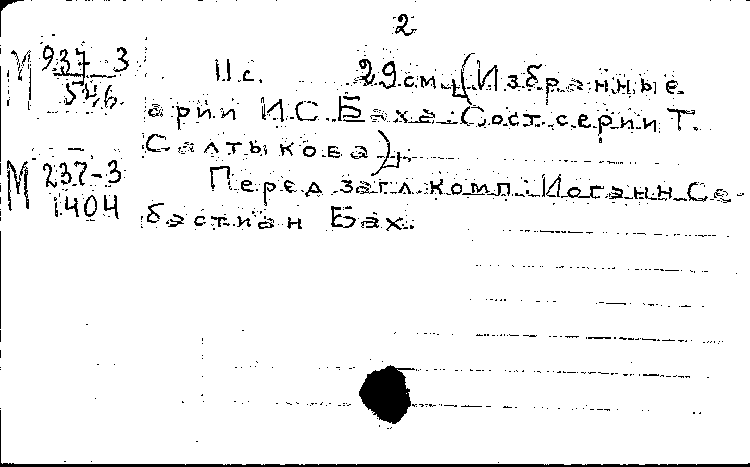 2
М 937-3
546
11 с. 29 см. (Избранные
арии И.С. Баха. Сост. серии Т.
Салтыкова).
М 237-3
1404
Перед загл. комп.: Иоганн Се-
бастиан Бах.